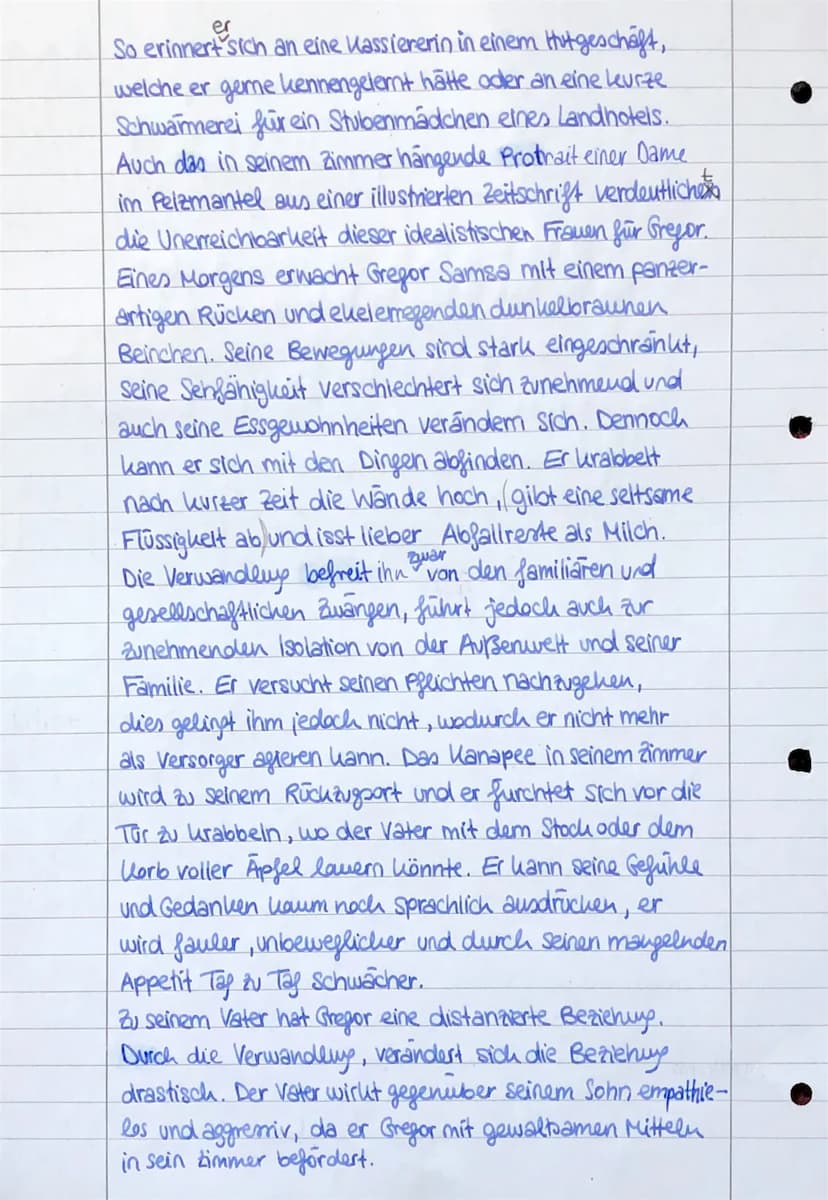 So erinnert er sich an eine Kassiererin in einem Hutgeschäft,
welche er gerne kennengelernt hätte oder an eine kurze
Schwärmerei für ein Stubenmädchen eines Landhotels.
Auch das in seinem Zimmer hängende Protrait einer Dame
im Pelzmantel aus einer illustrierten Zeitschrift verdeutlicht
die Unerreichbarkeit dieser idealistischen Frauen für Gregor.
Eines Morgens erwacht Gregor Samsa mit einem panzer-
artigen Rücken und ekelerregenden dunkelbraunen
Beinchen. Seine Bewegungen sind stark eingeschränkt,
seine Sehfähigkeit verschlechtert sich zunehmend und
auch seine Essgewohnheiten verändern sich. Dennoch
kann er sich mit den Dingen abfinden. Er krabbelt
nach kurzer Zeit die Wände hoch, (gibt eine seltsame
Flüssigkeit ab) und isst lieber Abfallreste als Milch.
Die Verwandlung befreit ihn zwar von den familiären und
gesellschaftlichen Zwängen, führt jedoch auch zur
zunehmenden Isolation von der Außenwelt und seiner
Familie. Er versucht seinen Pflichten nachzugehen,
dies gelingt ihm jedoch nicht, wodurch er nicht mehr
als Versorger agieren kann. Das Kanapee in seinem Zimmer
wird zu seinem Rückzugsort und er fürchtet sich vor die
Tür zu krabbeln, wo der Vater mit dem Stock oder dem
Korb voller Äpfel lauern könnte. Er kann seine Gefühle
und Gedanken kaum noch sprachlich ausdrücken, er
wird fauler, unbeweglicher und durch seinen mangelnden
Appetit Tag zu Tag schwächer.
Zu seinem Vater hat Gregor eine distanzierte Beziehung.
Durch die Verwandlung, verändert sich die Beziehung
drastisch. Der Vater wirkt gegenüber seinem Sohn empathie-
los und aggressiv, da er Gregor mit gewaltsamen Mitteln
in sein Zimmer befördert.